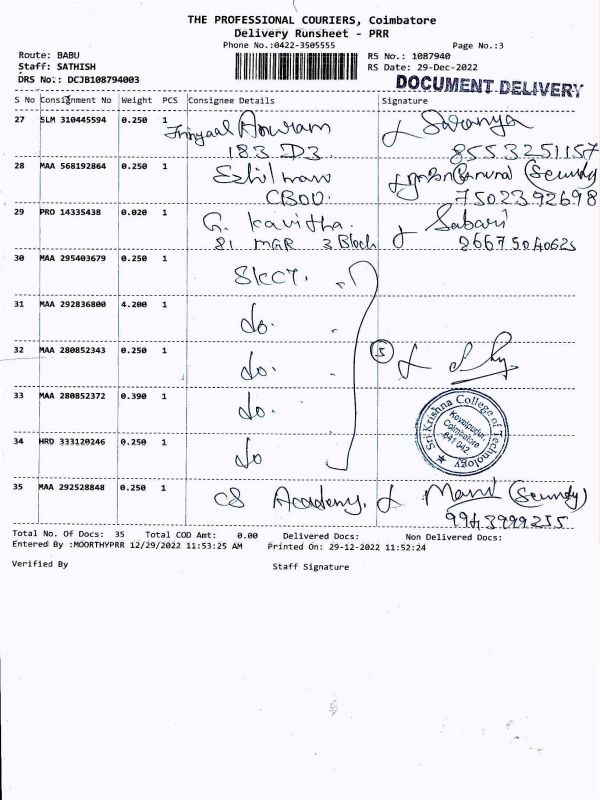 THE PROFESSIONAL COURIERS, Coimbatore
Delivery Runsheet - PRR
Phone No.:0422-3505555
Page No.:3
Route: BABU
RS No.: 1087940
Staff: SATHISH
RS Date: 29-Dec-2022
DRS No.: DCJB108794003
DOCUMENT DELIVERY
S No Consignment No Weight PCS Consignee Details Signature
27 SLM 310445594 0.250 1 Saranya
183 D3 8553251157
28 MAA 568192864 0.250 1 Ezhilmaran (Security)
CBOD. 7502392698
29 PRO 14335438 0.020 1 G. Kavitha. Sabari
81 MGR 3 Block 8667504062
30 MAA 295403679 0.250 1 SKCT.
31 MAA 292836800 4.200 1 do.
32 MAA 280852343 0.250 1 do. 5
33 MAA 280852372 0.390 1 do.
34 HRD 333120246 0.250 1 do
Sri Krishna College of Technology
Kovaipudur,
Coimbatore
641 042
35 MAA 292528848 0.250 1 CS Academy. Mani (Security)
9943999255
Total No. Of Docs: 35 Total COD Amt: 0.00 Delivered Docs: Non Delivered Docs:
Entered By :MOORTHYPRR 12/29/2022 11:53:25 AM Printed On: 29-12-2022 11:52:24
Verified By Staff Signature